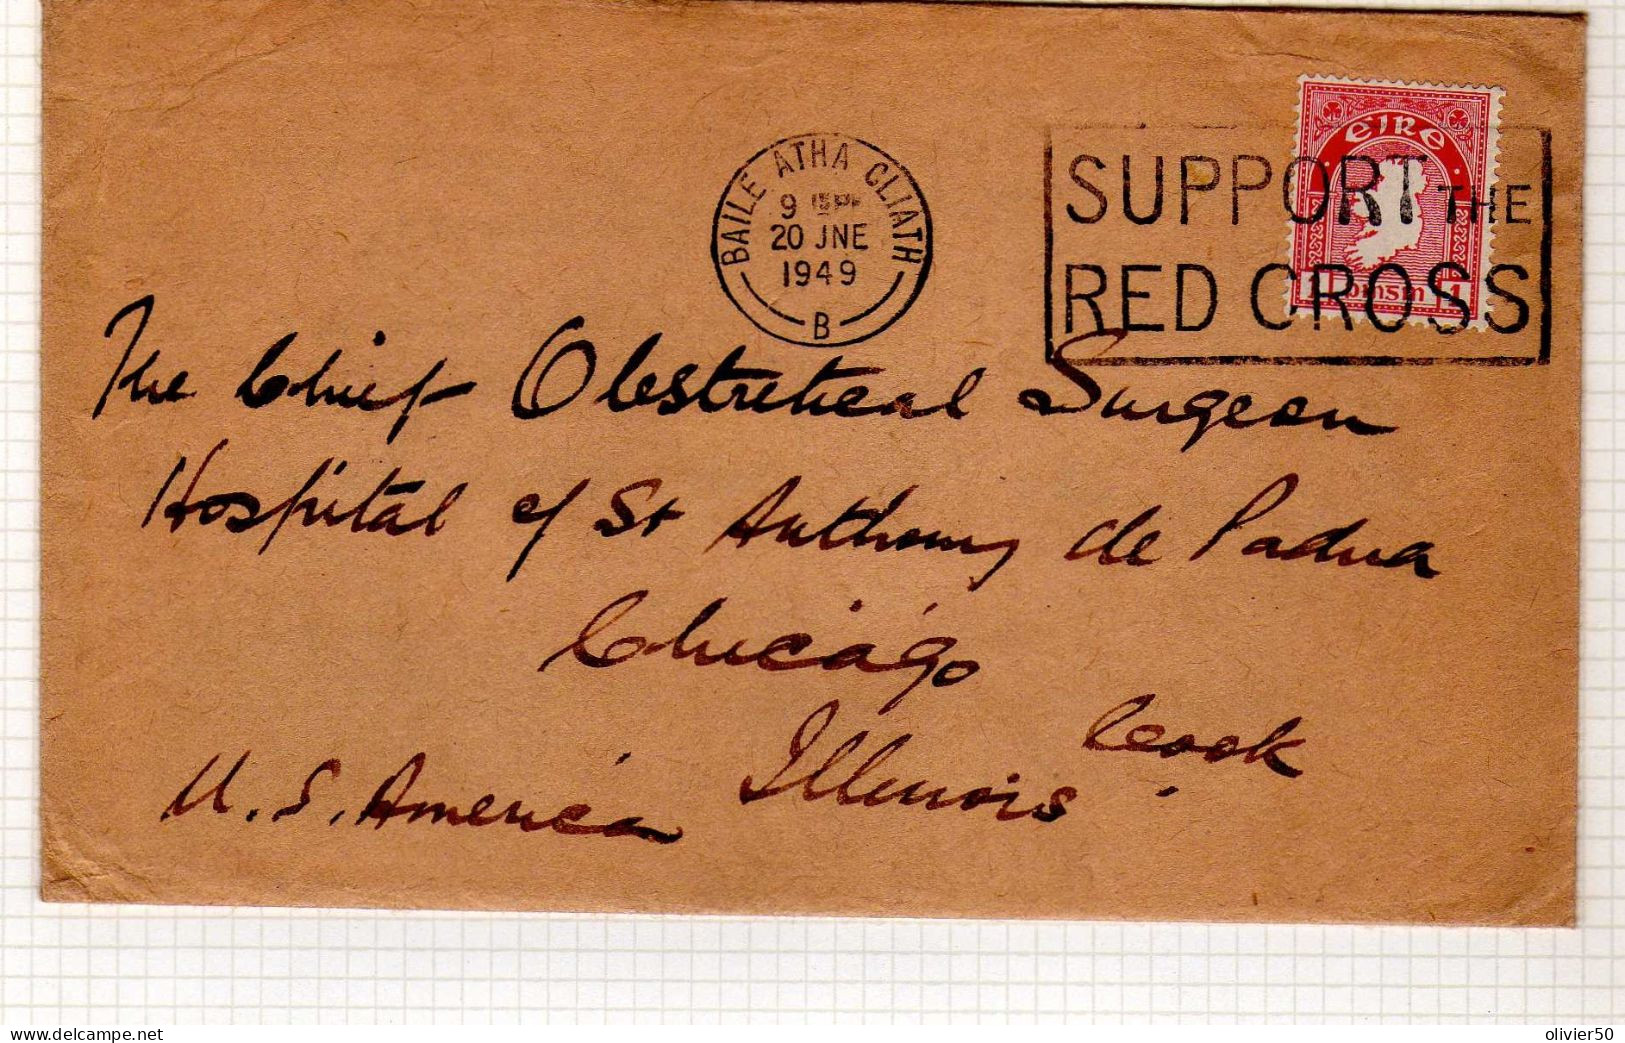 BAILE ÁTHA CLIATH
9 15 PM
20 JNE
1949
B
SUPPORT THE
RED CROSS
EIRE
1 pinsin 1
The Chief Obstretical Surgeon
Hospital of St Anthony de Padua
Chicago
Cook
Illinois
U.S. America
www.delcampe.net
olivier50